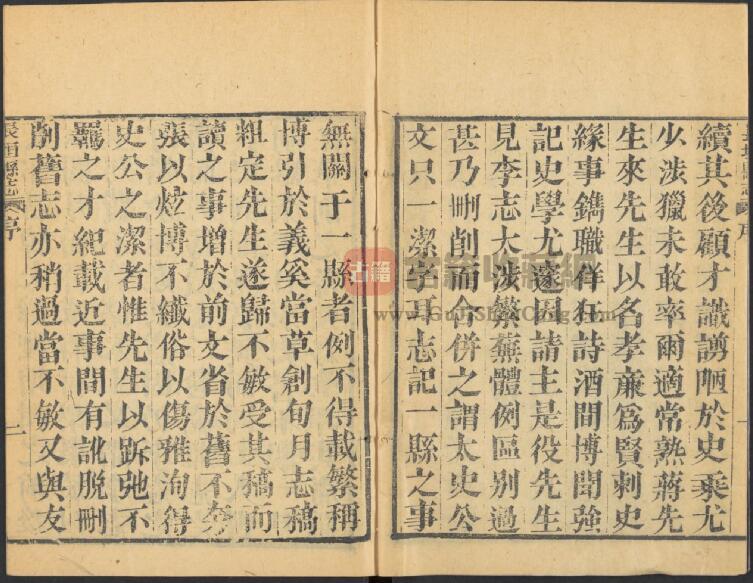 續其後顧才識謭陋於史乘尤
少涉獵未敢率爾適常熟蔣先
生來先生以名孝廉爲賢刺史
緣事鐫職佯狂詩酒間博聞強
記史學尤邃因請主是役先生
見李志太涉繁蕪體例區別過
甚乃刪削而合併之謂太史公
文只一潔字耳志記一縣之事
無關于一縣者例不得載繁稱
博引於義奚當草創旬月志稿
粗定先生遂歸不敏受其稿而
讀之事增於前文省於舊不夸
張以炫博不纖俗以傷雅洵得
史公之潔者惟先生以跅弛不
羈之才紀載近事間有訛脫刪
削舊志亦稍過當不敏又與友
長垣縣志 序 二
古籍